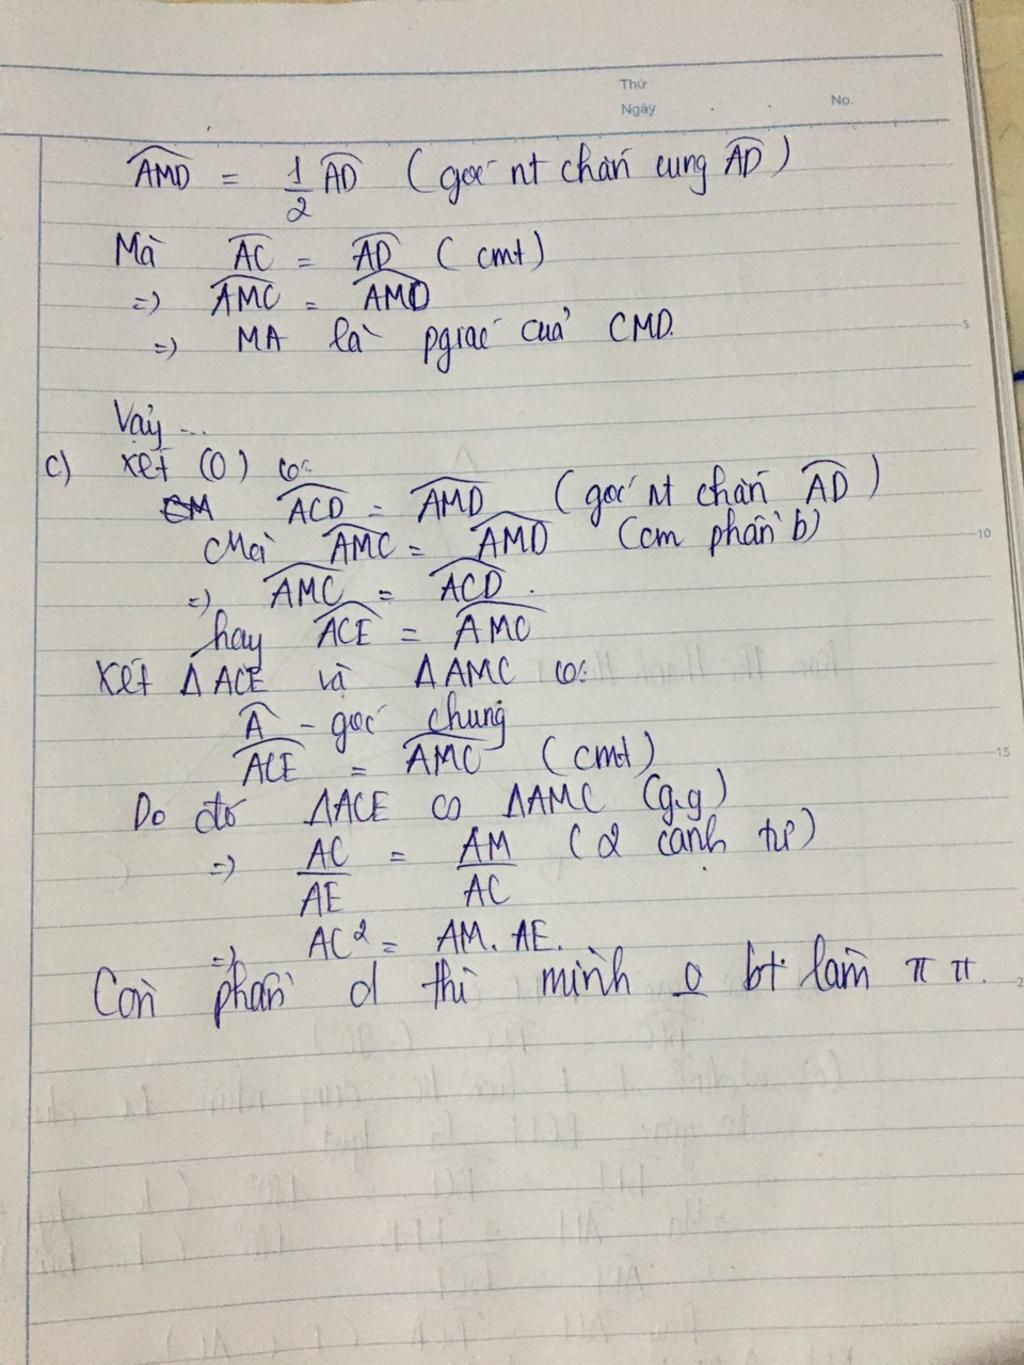 Thứ
Ngày . . No.
AMD = 1/2 AD (góc nt chắn cung AD)
Mà AC = AD (cmt)
=) AMC = AMD
=) MA là pgiác của CMD.
Vậy ...
c) Xét (O) có:
ACD = AMD (góc nt chắn AD)
Mà AMC = AMD (cm phần b)
=) AMC = ACD.
hay ACE = AMC
Xét Δ ACE và Δ AMC có:
A - góc chung
ACE = AMC (cmt)
Do đó ΔACE ∽ ΔAMC (g.g)
=) AC/AE = AM/AC (2 cạnh tư)
=) AC² = AM. AE.
Còn phần d thì mình o bt làm π π.